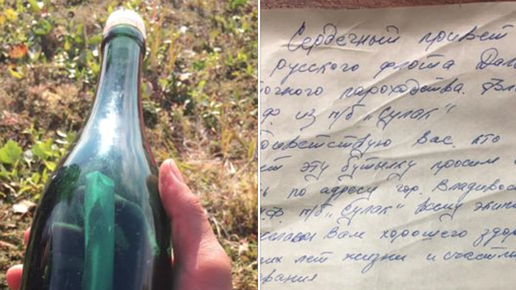 Сердечный привет
русского флота Дал
точного пароходства. Вл
ф из п/б "Сулак"
ветствую Вас, кто
ет эту бутылку просим
ь по адресу гор. Владивос
п/б "Сулак" всему экипа
Вам хорошего здор
их лет жизни и счастли
вания